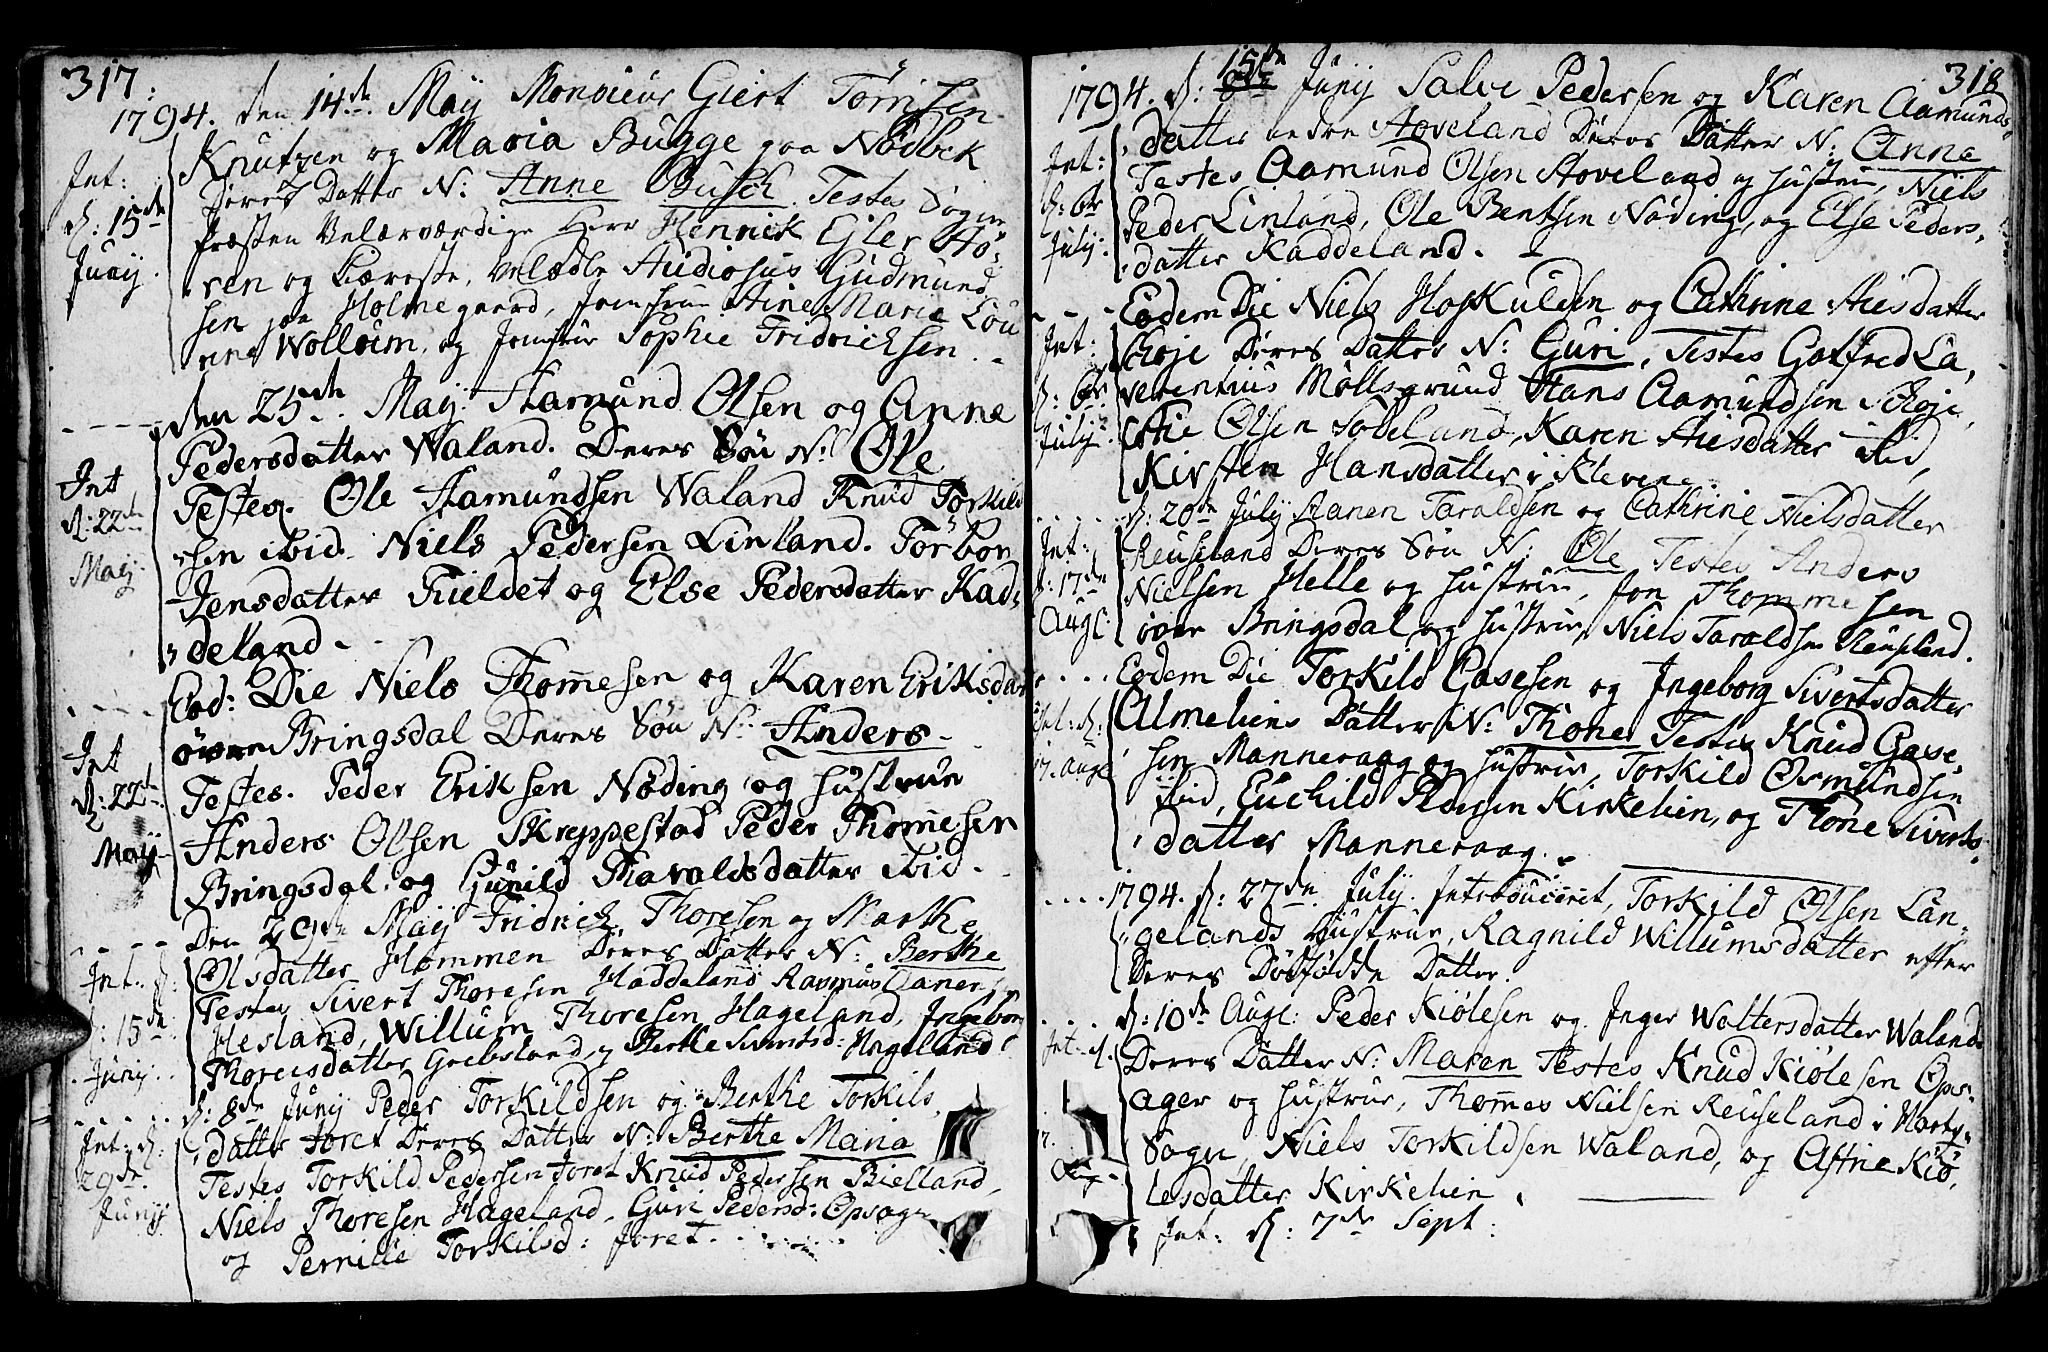 317.
1794. den 14de May Monsieur Giert Tönnisen
Knutzen og Maria Bugge paa Nödbek
Deres Datter N: Anne Busch Testes Sogne
Præsten Velærværdige Herr Henrik Ejler Stö-
ren og Kiæreste, Velædle Studiosus Gudmund
sen paa Holmegaard, Jomfrue Stine Marie Lou
rine Wolloum, og Jomfrue Sophie Fridrichsen.
Int:
d: 15de
Junij.
den 25de May. Aamund Olsen og Anne
Pedersdatter Waland. Deres Sön N: Ole
Testes. Ole Aamundsen Waland Knud Torkild
sen ibid. Niels Pedersen Linland. Torbor
Jensdatter Fieldet og Else Pedersdatter Kad-
deland.
Int
d: 22de
Maij
Eod: Die Niels Thommesen og Karen Eriksdat
övre Bringsdal Deres Sön N: Anders
Testes. Peder Eriksen Nöding og Hustrue
Anders Olsen Skreppestad Peder Thommesen
Bringsdal. og Gunild Tharaldsdatter ibid.
Int
d: 22de
Maij
Den 29de Maij Fridrich Thoresen og Marthe
Olsdatter Hommen Deres Datter N: Berthe
Testes Sivert Thoresen Haddeland Rasmus
Hesland, Willum Thoresen Hageland, Ingebor
Thoresdatter Grebsland, og Berthe Sivertsd: Hageland
Int. d:
15de
Junij
d: 8de Junij Peder Torkildsen og Berthe Torkils
datter Foret Deres Datter N: Berthe Maria
Testes Torkild Pedersen Foret Knud Pedersen Bielland,
Niels Thoresen Hageland, Guri Pedersd: Opsager
og Pernille Torkilsd: Foret.
Int. d:
29de
Junij
318
1794. d: 15de Junij Salve Pedersen og Karen Aamunds-
datter nedre Stoveland Deres Datter N: Anne
Testes Aamund Olsen Stoveland og Hustrue, Niels
Peder Linland, Ole Bentsen Nöding, og Else Peders-
datter Kaddeland.
Int:
d: 6te
July.
Eodem Die Niels Hoskuldsen og Cathrine Stiesdatter
Deres Datter N: Guri, Testes Gotfred La-
verentius Möllsgrund Hans Aamundsen
Stie Olsen Sodeland, Karen Stiesdatter ibid,
Kirsten Hansdatter i Klevene.
Int:
d: 6te
July
d: 20de July Aanen Taraldsen og Cathrine Nielsdatter
Reuseland Deres Sön N: Ole Testes Anders
Nielsen Helle og Hustrue, Jon Thommesen
övre Bringsdal og Hustrue, Niels Taraldsen Reuseland.
Int:
17de
Aug:
Eodem Die Torkild Gasesen og Ingeborg Sivertsdatter
Almeliens Datter N: Thone Testes Knud Gase-
sen Manneraag og Hustrue, Torkild Osmundsen
ibid, Euchild Pedersen Kirkelien, og Thone Siverts-
datter Manneraag.
d:
17. Aug
1794. d: 27de July. Introduceret, Torkild Olsen Lan-
gelands Hustrue, Ragnild Willumsdatter efter
Deres Dödfödde Datter.
d: 10de Aug: Peder Kiölesen og Inger Woltersdatter Walands
Deres Datter N: Maren Testes Knud Kiölesen Ops-
ager og Hustrue, Thommes Nielsen Reuseland i
Sogn, Niels Torkildsen Waland, og Astrie Kiö-
lesdatter Kirkelien.
Int: d: 7de Sept:
Int: d.
17.
Aug